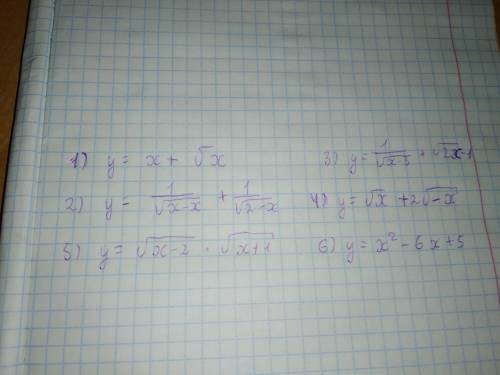 1) y = x + √x
3) y = 1/√(x-5) + √(2x-1)
2) y = 1/√(x-x) + 1/√(2-x)
4) y = √x + 2√(-x)
5) y = √(x-2) · √(x+1)
6) y = x² - 6x + 5